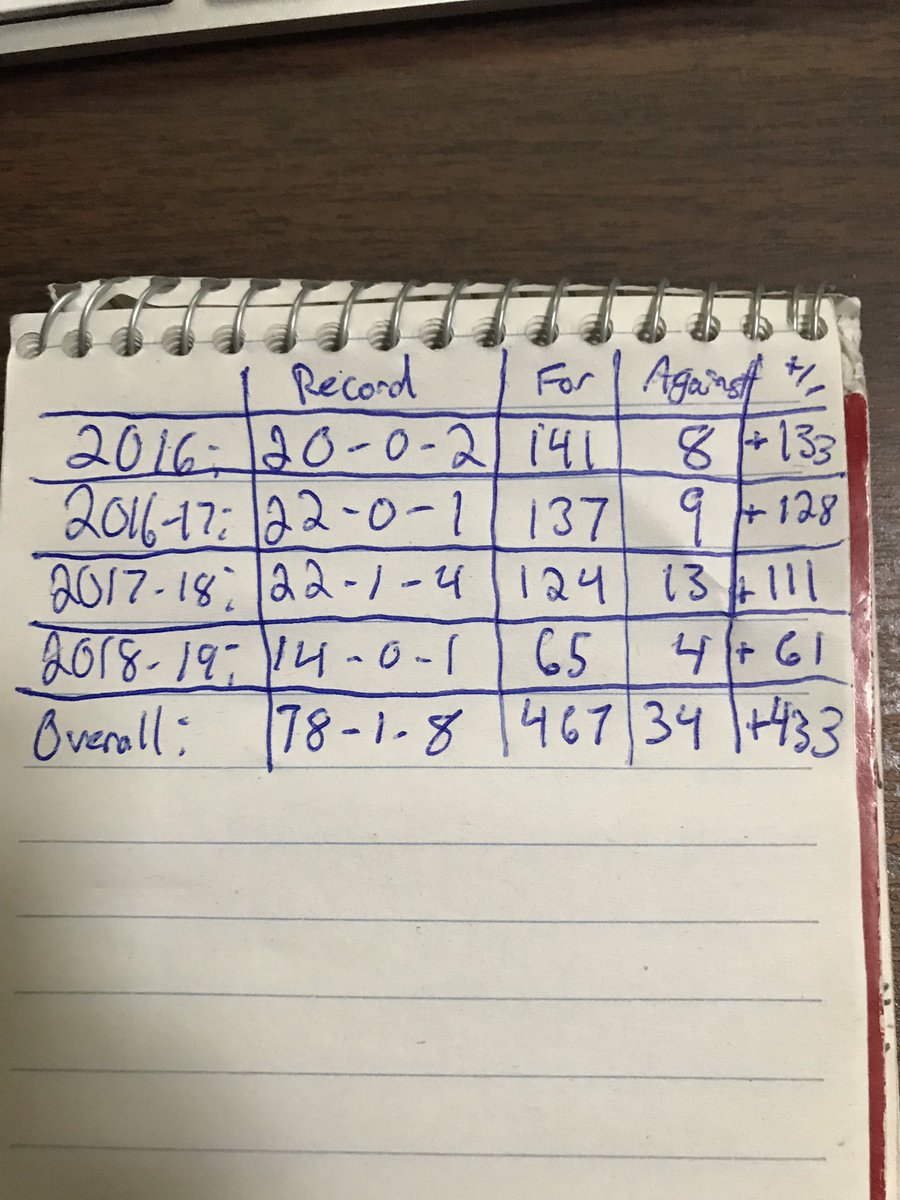 Record For Against +/-
2016: 20-0-2 141 8 +133
2016-17: 22-0-1 137 9 +128
2017-18: 22-1-4 124 13 +111
2018-19: 14-0-1 65 4 +61
Overall: 78-1-8 467 34 +433